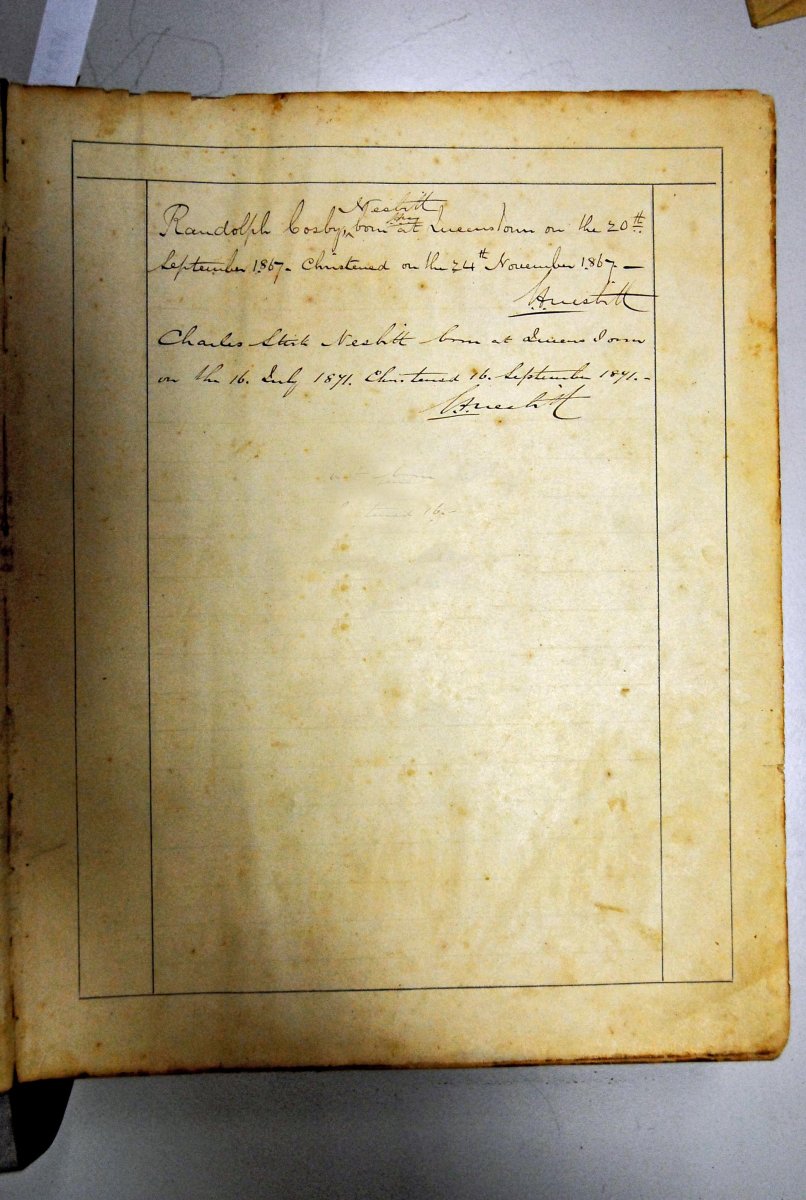 Nesbitt
Randolph Cosby born at Queenstown on the 20th
September 1867 - Christened on the 24th November 1867 —
Nesbitt
Charles Nesbitt born at Queenstown
on the 16. July 1871. Christened 16. September 1871. -
Nesbitt